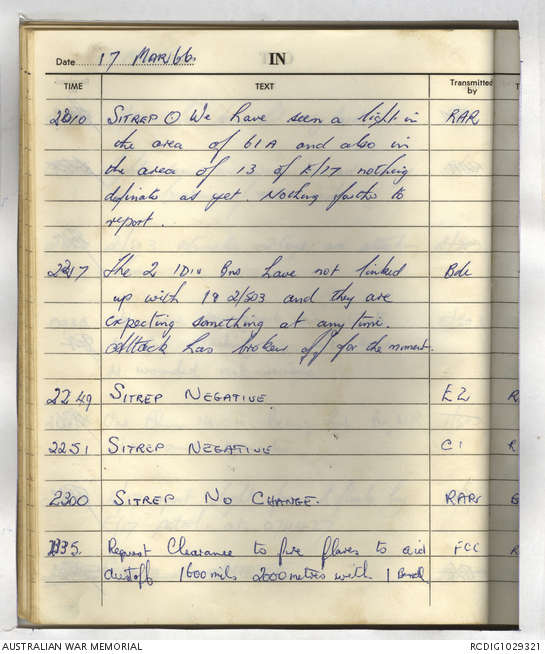 Date 17 MAR 66. IN
TIME TEXT Transmitted by T
2210 SITREP O We have seen a light in RAR
the area of 61A and also in
the area of 13 of E/17 nothing
definate as yet. Nothing further to
report.
2217 The 2 1 Div Bns have not linked Bde
up with 2/503 and they are
expecting something at any time.
Attack has broken off for the moment.
2249 SITREP NEGATIVE E2 R
2251 SITREP NEGATIVE C1 R
2300 SITREP NO CHANGE. RAR
Request Clearance to fire flares to aid FCC R
dustoff 1600 mils 2000 metres with 1
AUSTRALIAN WAR MEMORIAL RCDIG1029321